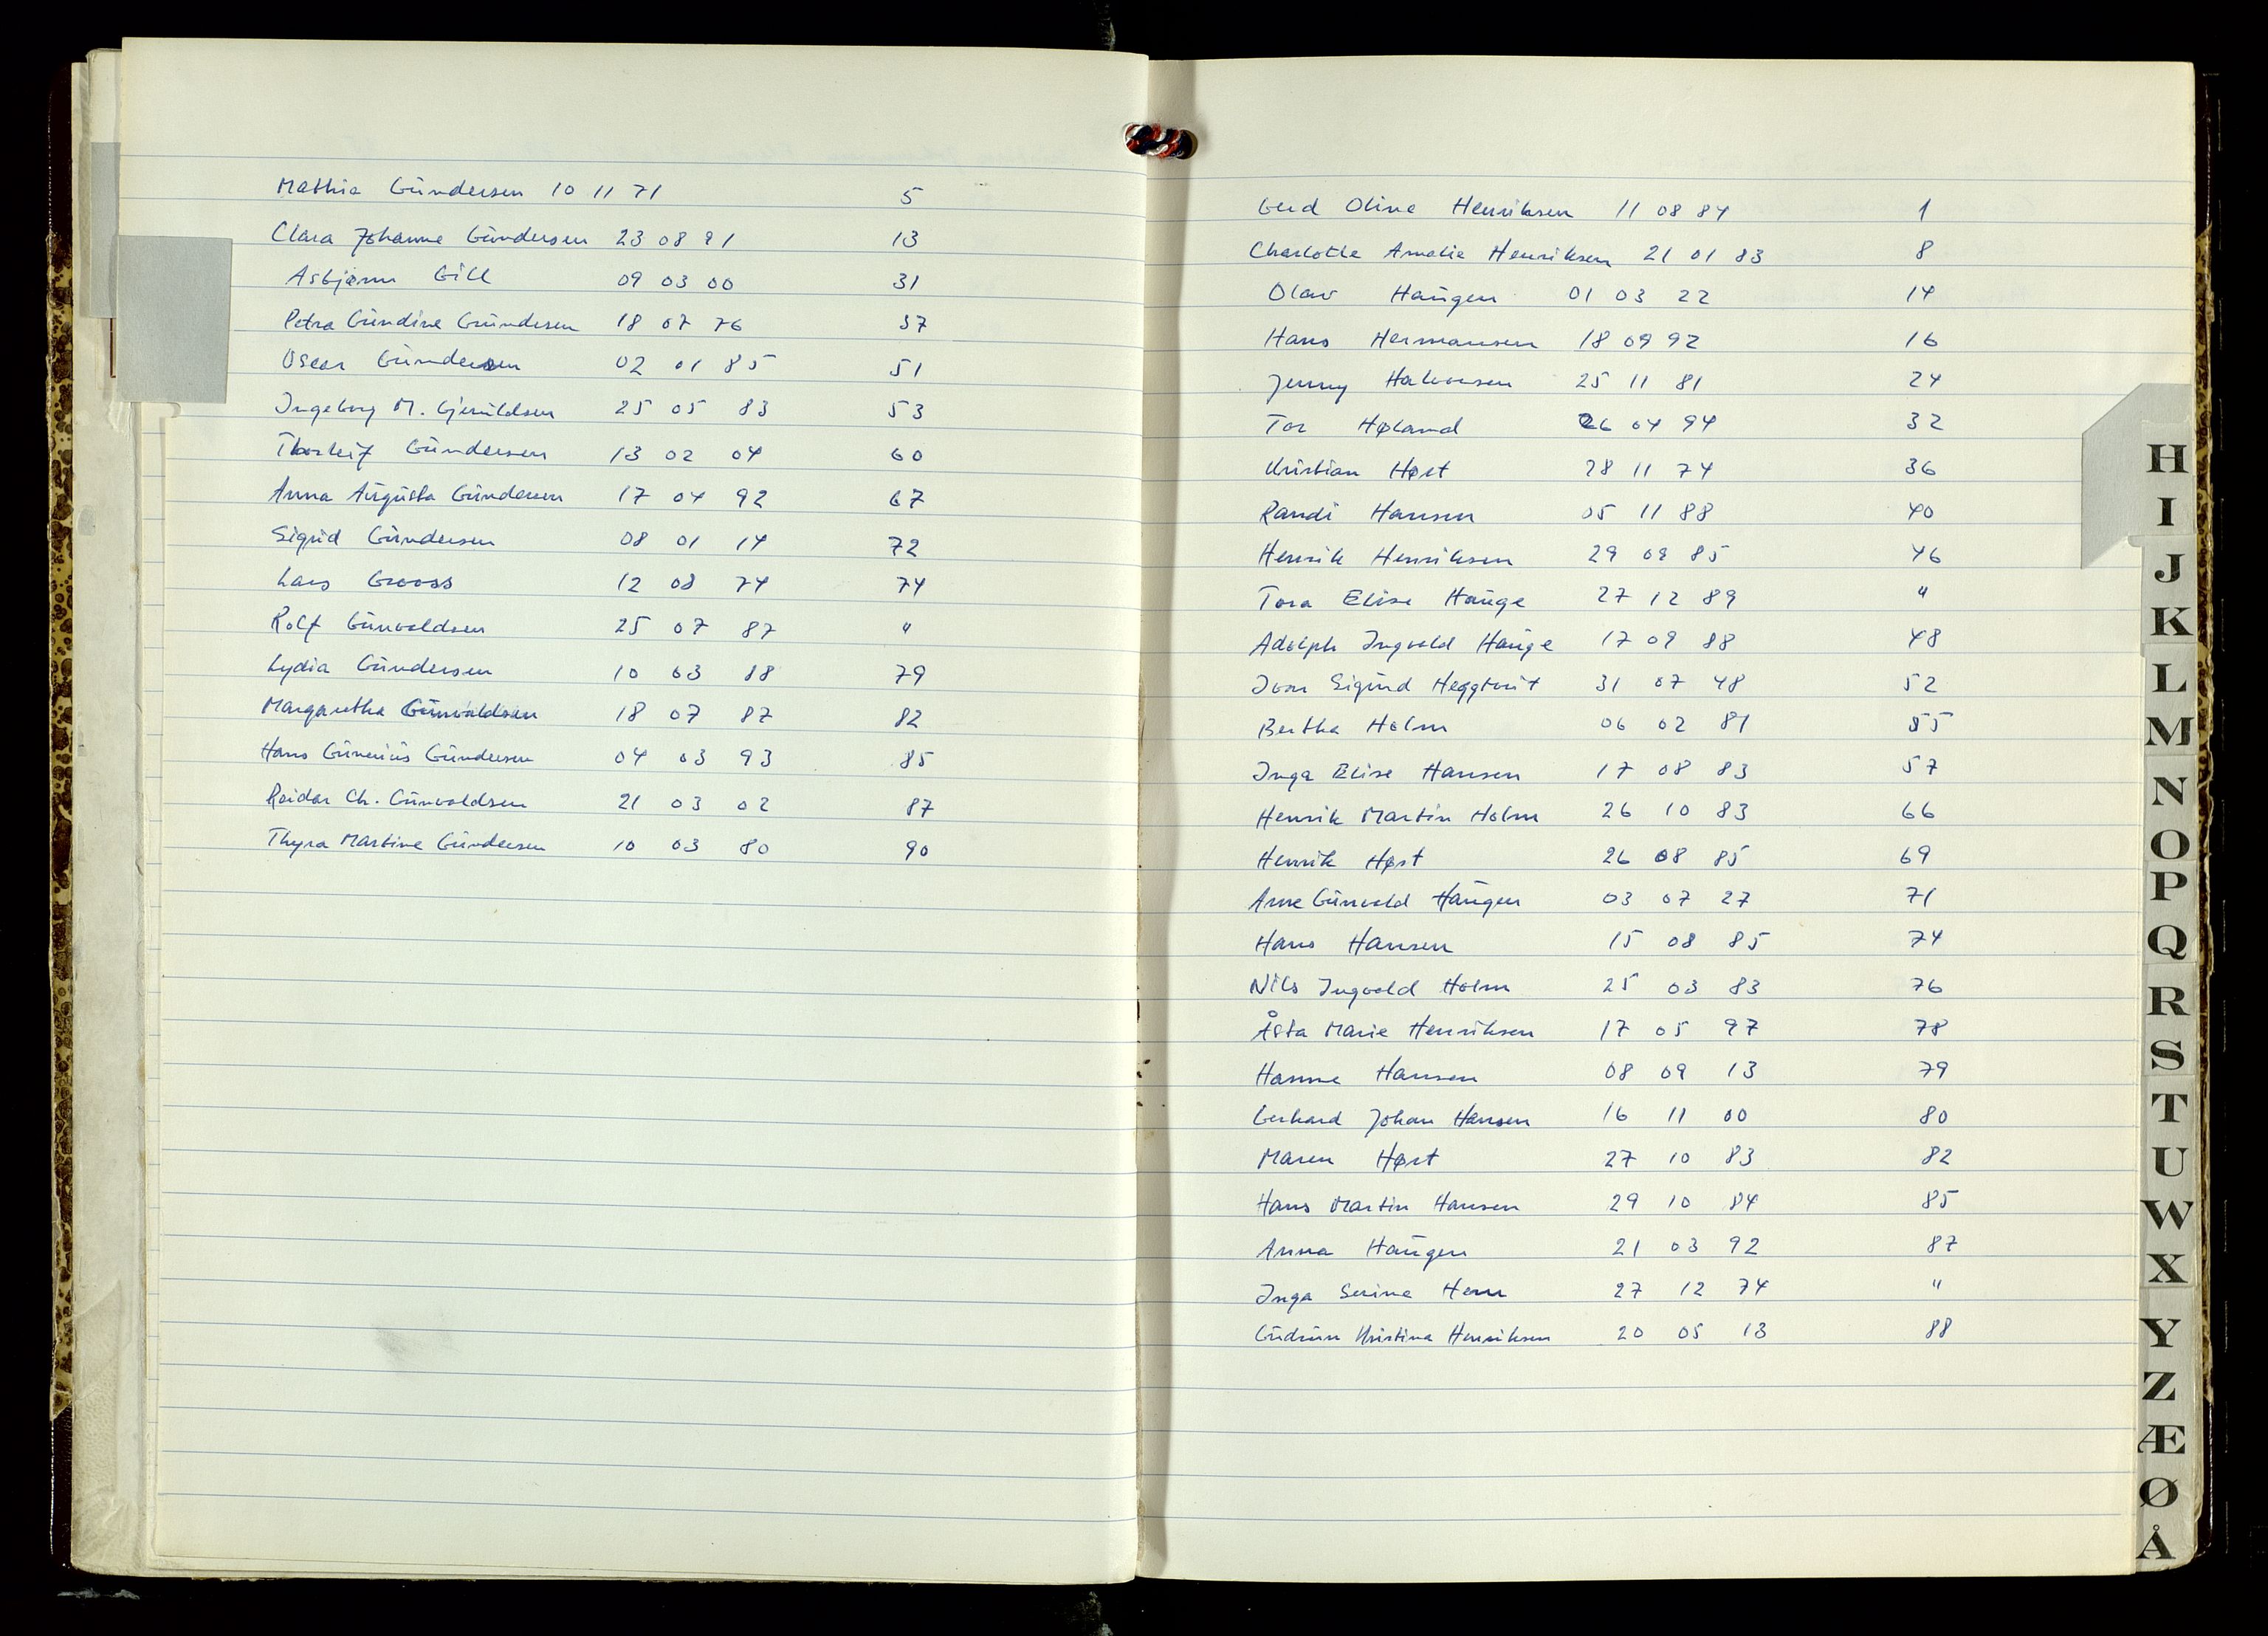 Mathia Gundersen 10 11 71 5
Clara Johanne Gundersen 23 08 91 13
Asbjørn Gill 09 03 00 31
Petra Gundine Gundersen 18 07 76 37
Oscar Gundersen 02 01 85 51
Ingeborg M. Gjeruldsen 25 05 83 53
Thorleif Gundersen 13 02 04 60
Anna Augusta Gundersen 17 04 92 67
Sigrid Gundersen 08 01 14 72
Lars Grooss 12 08 74 74
Rolf Gunvaldsen 25 07 87 "
Lydia Gundersen 10 03 88 79
Margaretha Gunvaldsen 18 07 87 82
Hans Gunerius Gundersen 04 03 93 85
Reidar Ch. Gunvaldsen 21 03 02 87
Thyra Martine Gundersen 10 03 80 90
Gerd Oline Henriksen 11 08 84 1
Charlotte Amalie Henriksen 21 01 83 8
Olav Haugen 01 03 22 14
Hans Hermansen 18 09 92 16
Jenny Halvorsen 25 11 81 24
Tor Høland 26 04 94 32
Kristian Høst 28 11 74 36
Randi Hansen 05 11 88 40
Henrik Henriksen 29 09 85 46
Tora Elise Hauge 27 12 89 "
Adolph Ingvald Hauge 17 09 88 48
Ivar Sigurd Heggtvit 31 07 48 52
Bertha Holm 06 02 81 55
Inga Elise Hansen 17 08 83 57
Henrik Martin Holm 26 10 83 66
Henrik Høst 26 08 85 69
Arne Gunvald Haugen 03 07 27 71
Hans Hansen 15 08 85 74
Nils Ingvald Holm 25 03 83 76
Åsta Marie Henriksen 17 05 97 78
Hanne Hansen 08 09 13 79
Gerhard Johan Hansen 16 11 00 80
Maren Høst 27 10 83 82
Hans Martin Hansen 29 10 84 85
Anna Haugen 21 03 92 87
Inga Serine Hem 27 12 74 "
Gudrun Kristina Henriksen 20 05 13 88
H
I
J
K
L
M
N
O
P
Q
R
S
T
U
W
X
Y
Z
Æ
Ø
Å